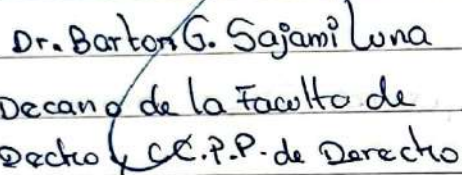 Dr. Barton G. Sajami Luna
Decano de la Faculta de
Decho y CC.P.P. de Derecho